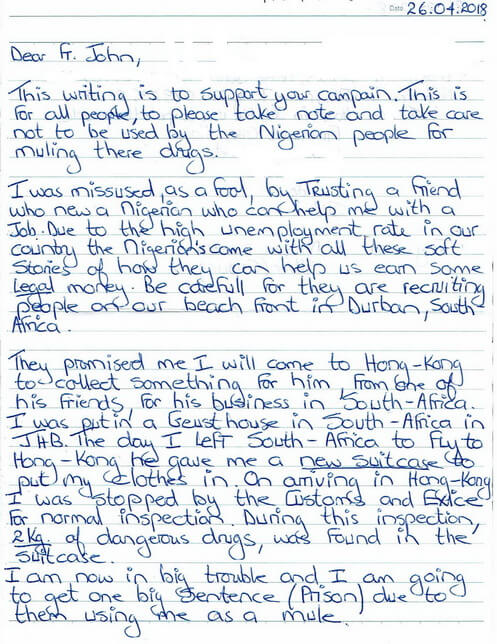 Date 26.04.2018
Dear Fr. John,
This writing is to support your campain. This is
for all people, to please take note and take care
not to be used by the Nigerian people for
muling there drugs.
I was missused, as a fool, by Trusting a friend
who new a Nigerian who can help me with a
Job. Due to the high unemployment, rate in our
country the Nigerian's come with all these soft
Stories of how they can help us earn some
Legal money. Be carefull for they are recruiting
people on our beach front in Durban, South
Africa.
They promised me I will come to Hong-Kong
to collect something for him, from one of
his friends, for his business in South-Africa.
I was put in a Geust house in South-Africa in
JHB. The day I left South-Africa to fly to
Hong-Kong he gave me a new suitcase to
put my clothes in. On arriving in Hong-Kong
I was stopped by the Customs and Exice
for normal inspection. During this inspection,
2Kg of dangerous drugs, was found in the
suitcase.
I am now in big trouble and I am going
to get one big sentence (Prison) due to
them using me as a mule.